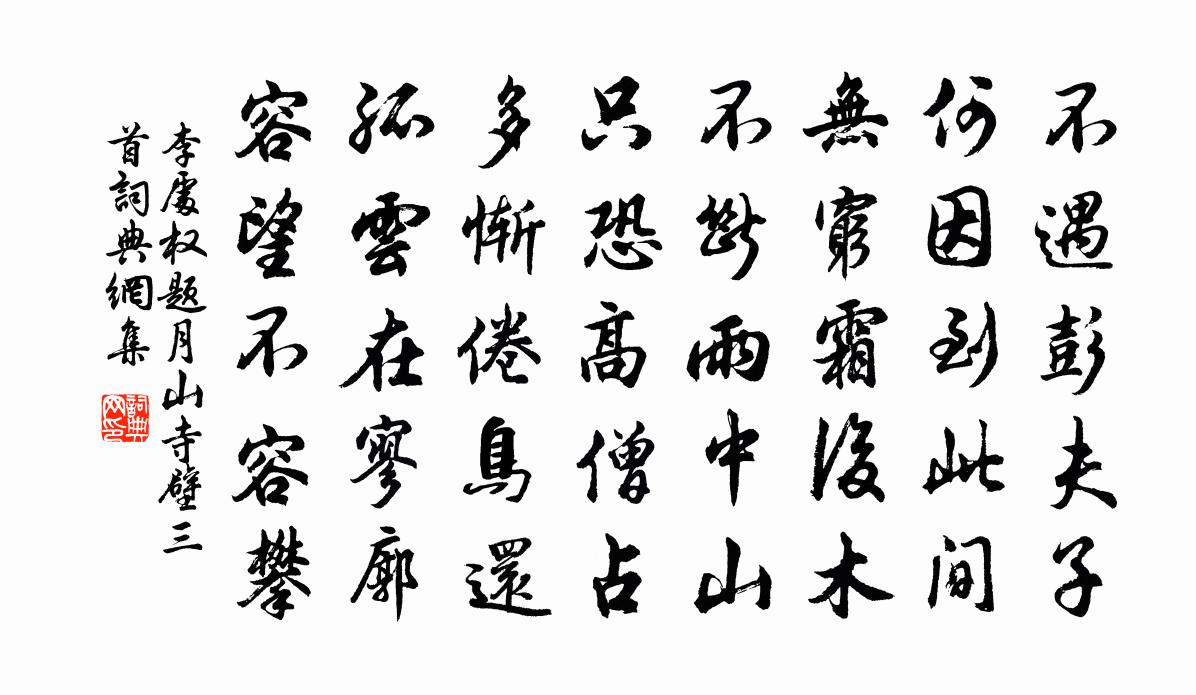 不遇彭夫子
何因到此間
無窮霜後木
不斷雨中山
只恐高僧占
多慚倦鳥還
孤雲在寥廓
容望不容攀
李處权题月山寺壁三
首詞典網集
詞典
网印